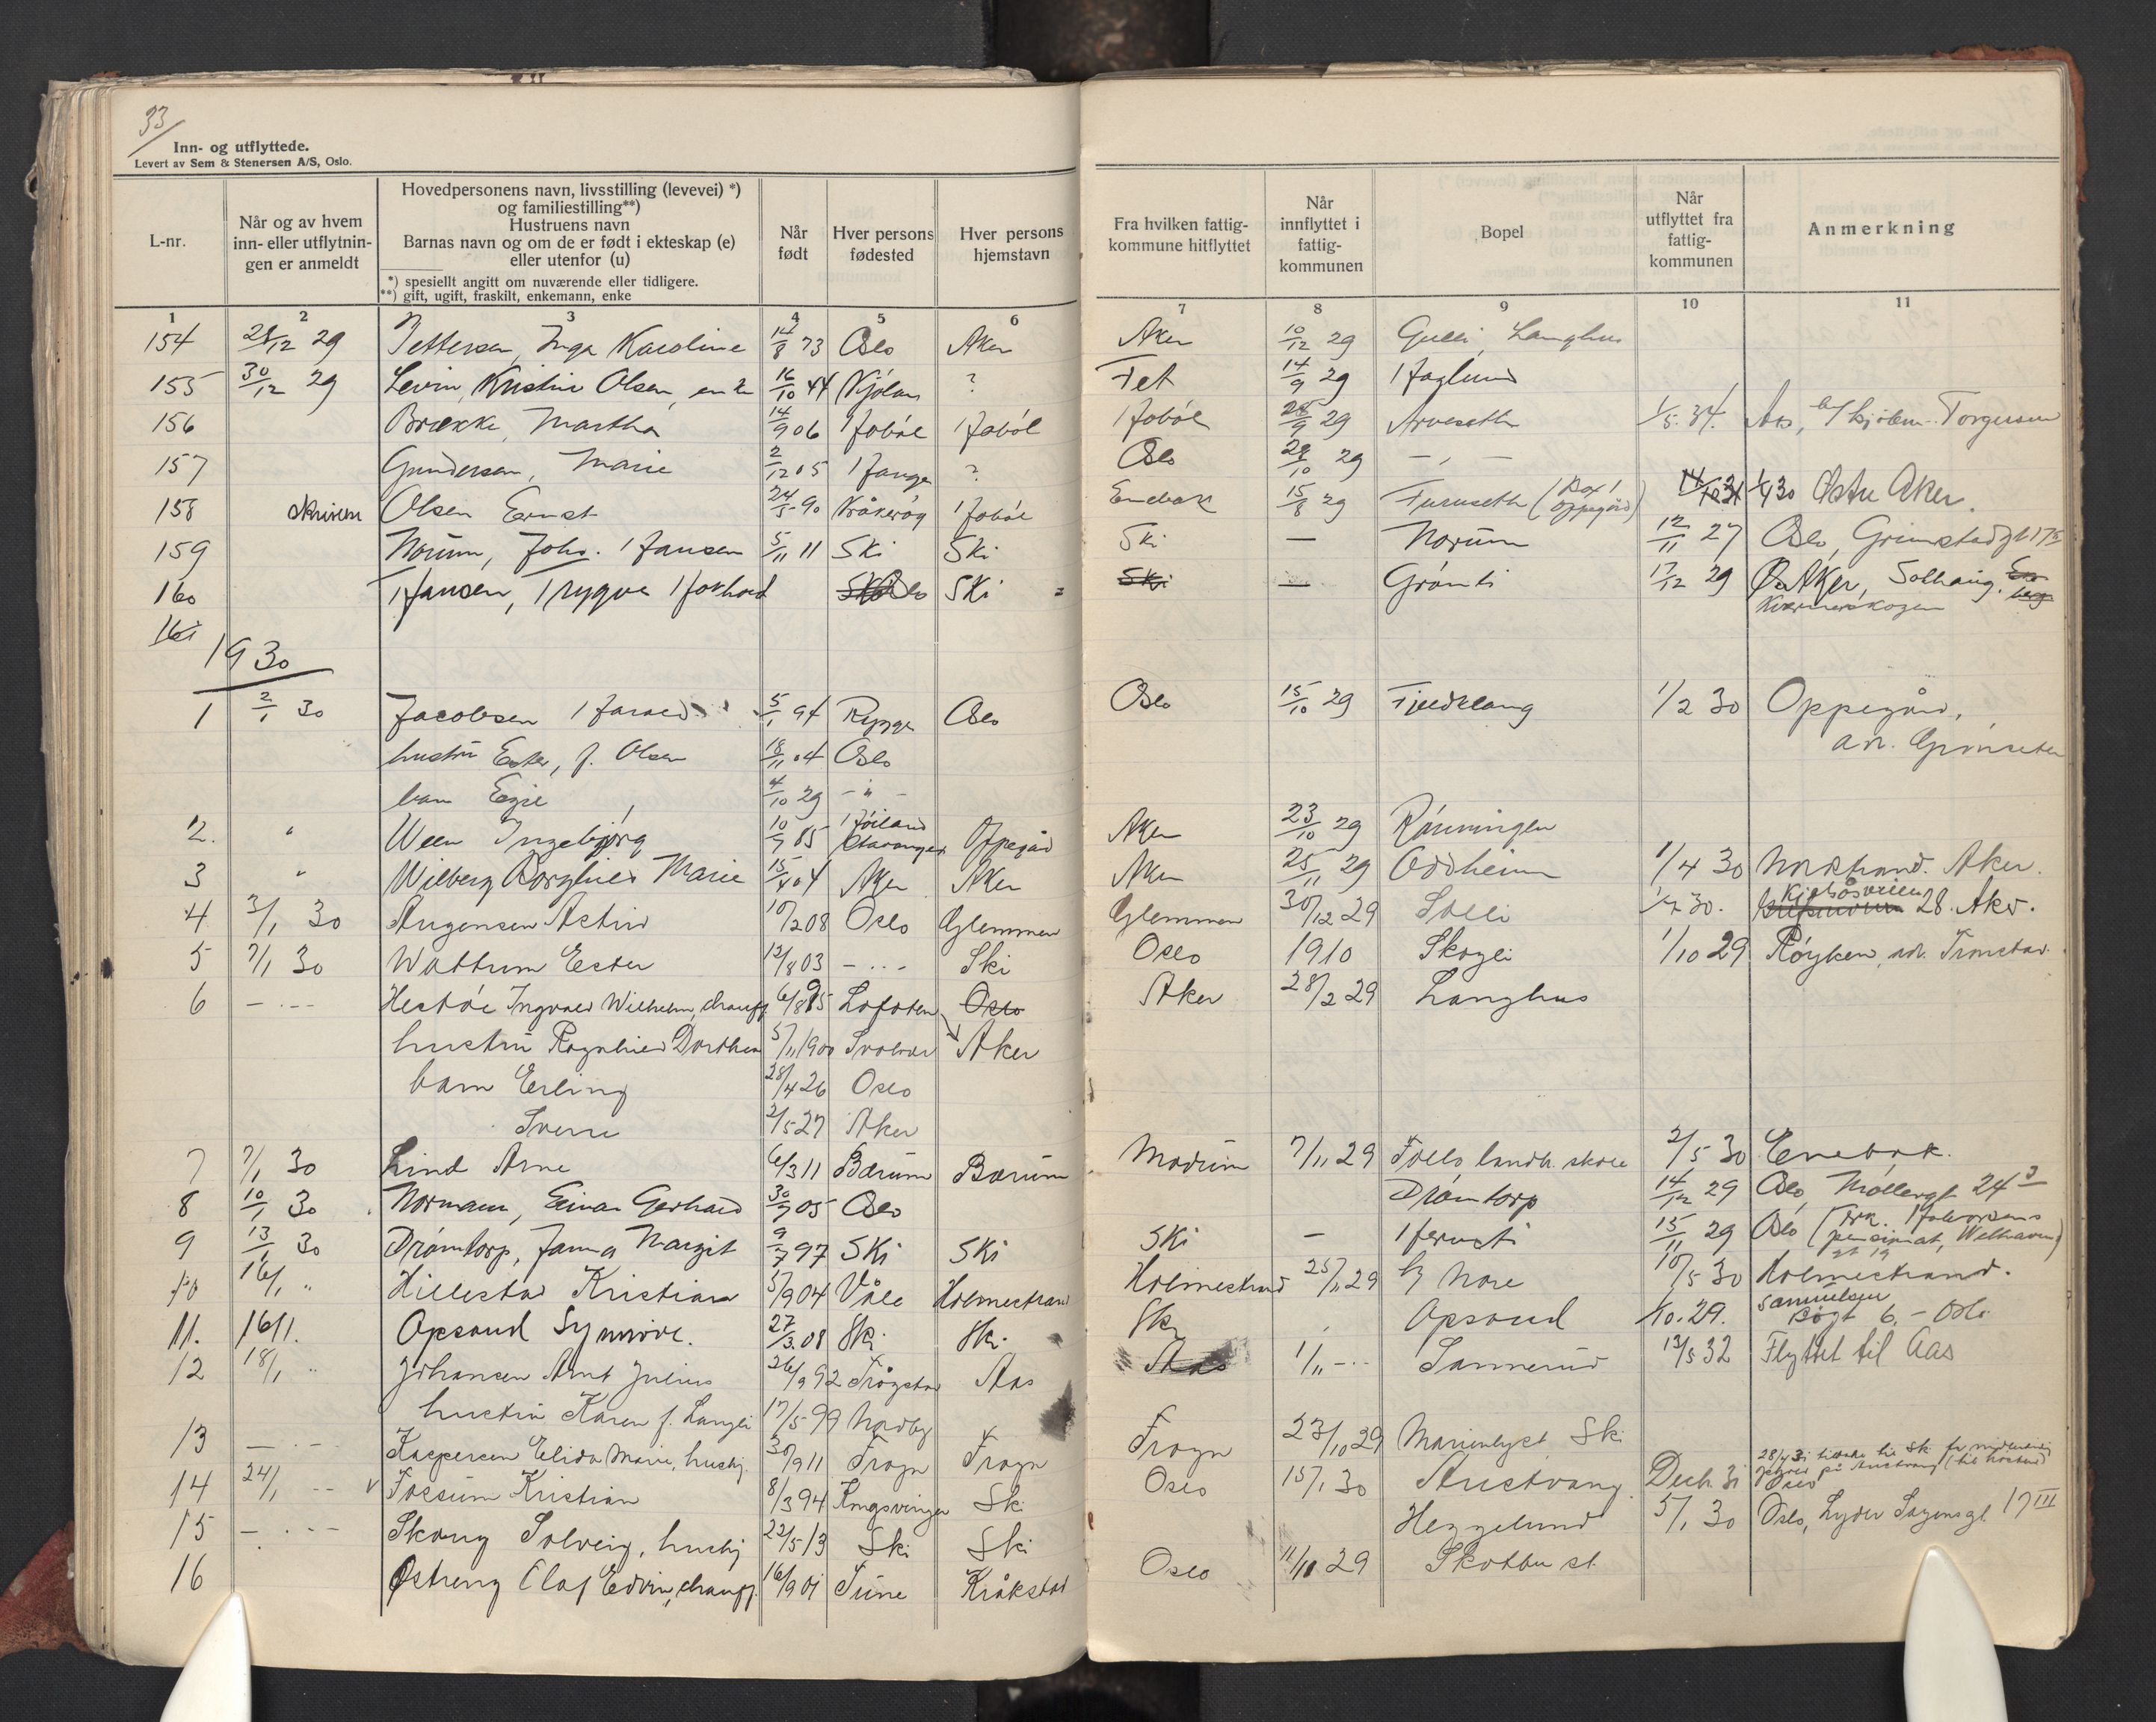 33
Inn- og utflyttede.
Levert av Sem & Stenersen A/S, Oslo.
L-nr.
Når og av hvem
inn- eller utflytnin-
gen er anmeldt
Hovedpersonens navn, livsstilling (levevei) *)
og familiestilling**)
Hustruens navn
Barnas navn og om de er født i ekteskap (e)
eller utenfor (u)
*) spesiellt angitt om nuværende eller tidligere.
**) gift, ugift, fraskilt, enkemann, enke
Når
født
Hver persons
fødested
Hver persons
hjemstavn
Fra hvilken fattig-
kommune hitflyttet
Når
innflyttet i
fattig-
kommunen
Bopel
Når
utflyttet fra
fattig-
kommunen
Anmerkning
1 2 3 4 5 6 7 8 9 10 11
154 28/12 29 Pettersen, Inga Karoline 14/8 73 Oslo Aker Aker 10/12 29 Gulli, Langhus
155 30/12 29 Levin, Kristine Olsen, enke 16/10 44 Kjölen ? Fet 14/9 29 Haglund
156 Brække, Martha 14/9 06 Hobøl Hobøl Hobøl 28/9 29 Arveseth 1/5 34. Aas, Torgersen
157 Gundersen, Marie 2/12 05 ? Oslo 28/10 29 — " —
158 Olsen Ernst 24/5 90 Kråkerøy Hobøl Enebak 15/8 29 Furuseth (Box 1 Oppegård) 1/4 30 Østre Aker.
159 Norum, Johs. Hansen 5/11 11 Ski Ski Ski — Norum 12/11 27 Oslo, Grimstadgt 17
160 Hansen, Trygve Oslo Ski Ski — Grønli 17/12 29 Ø. Aker, Solhaug.
161
1930
1 2/1 30 Jacobsen Harald 5/1 94 Rygge Oslo Oslo 15/10 29 1/2 30 Oppegård,
hustru Ester, f. Olsen 18/11 04 Oslo
adr. Grønseter
barn Egil 4/10 29 - " -
2. " Ween Ingebjørg 10/7 85 Høiland Stavanger Oppegård Aker 23/10 29 Rønningen
3 " Wilberg Borghild Marie 15/4 04 Aker Aker Aker 25/11 29 Oddheim 1/4 30 Nordstrand. Aker.
4 3/1 30 Astrid 10/2 08 Oslo Glemmen Glemmen 30/12 29 Solli 1/4 30. Kjelsåsveien 28. Aker.
5 7/1 30 Wattum Ester 12/8 03 - " - Ski Oslo 1910 Skogli 1/10 29 Røyken, adr. Tronstad
6 - " - Ingvald Wilhelm, chauff 6/8 95 Lofoten Oslo Aker 28/2 29 Langhus
hustru Ragnhild Dorthea 5/11 1900 Svolvær Aker
barn Erling 28/4 26 Oslo
Sverre 2/5 27 Aker
7 7/1 30 Lind Arne 6/3 11 Bærum Bærum Modum 7/11 29 Follo landb. skole 2/5 30 Enebak.
8 10/1 30 Normann, Einar Gerhard 30/7 05 Oslo Drømtorp 14/12 29 Oslo, Møllergt 24
9 13/1 30 Drømtorp, Margit 9/7 97 Ski Ski Ski — 15/11 29 Oslo (Frk. Halvorsens
pensjonat, Welhavens
gt 19
10 16/1 " Hillestad Kristian 5/9 04 Våle Holmestrand Holmestrand 25/11 29 Nore 10/5 30 Holmestrand.
11. 16/1. Opsand Synnöve. 27/3 08 Ski Ski Ski Opsand 1/10. 29. Samuelsen
6. - Oslo
12 18/1 " Johansen Arnt Julius 26/9 92 Trøgstad Aas Aas 1/11 - " - Sannerud 13/5 32 Flyttet til Aas
hustru Karen f. Langli 17/5 99 Nordby
13 - " - Kaspersen Elida Marie, hushj. 30/9 11 Frogn Frogn Frogn 23/10 29 Marienlyst Ski
14 24/1 " Fossum Kristian 8/3 94 Kongsvinger Ski Oslo 15/1 30 Austvang Decb. 31
15 - " - Skaug Solveig, hushj 22/5 13 Ski Ski Heggelund 5/1 30 Oslo, Lyder Sagensgt 17 III
16 Østreng Olaf Edvin, chauff. 16/9 01 Tune Kråkstad Oslo 11/10 29 Skotbu st.